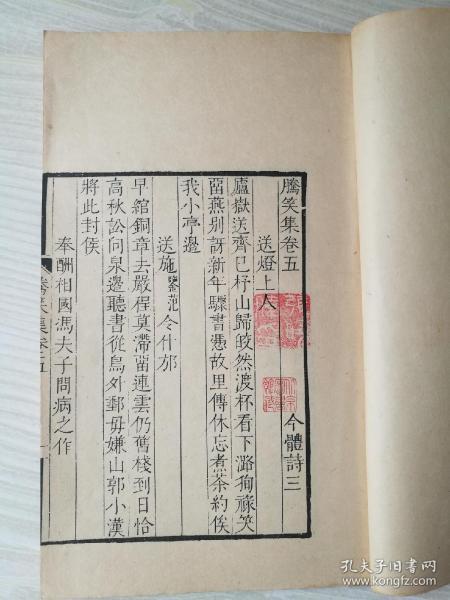 騰笑集卷五 今體詩三
送燈上人
廬嶽送齊已杼山歸皎然渡杯看下潞狥祿笑
畱燕別訝新年驟書憑故里傳休忘煮茶約俟
我小亭邊
送施令什邡
早綰銅章去嚴程莫滯畱連雲仍舊棧到日恰
高秋訟向泉邊聽書從鳥外郵毋嫌山郭小漢
將此封侯
奉酬相國馮夫子問病之作
騰笑集卷五 一
孔夫子旧书网